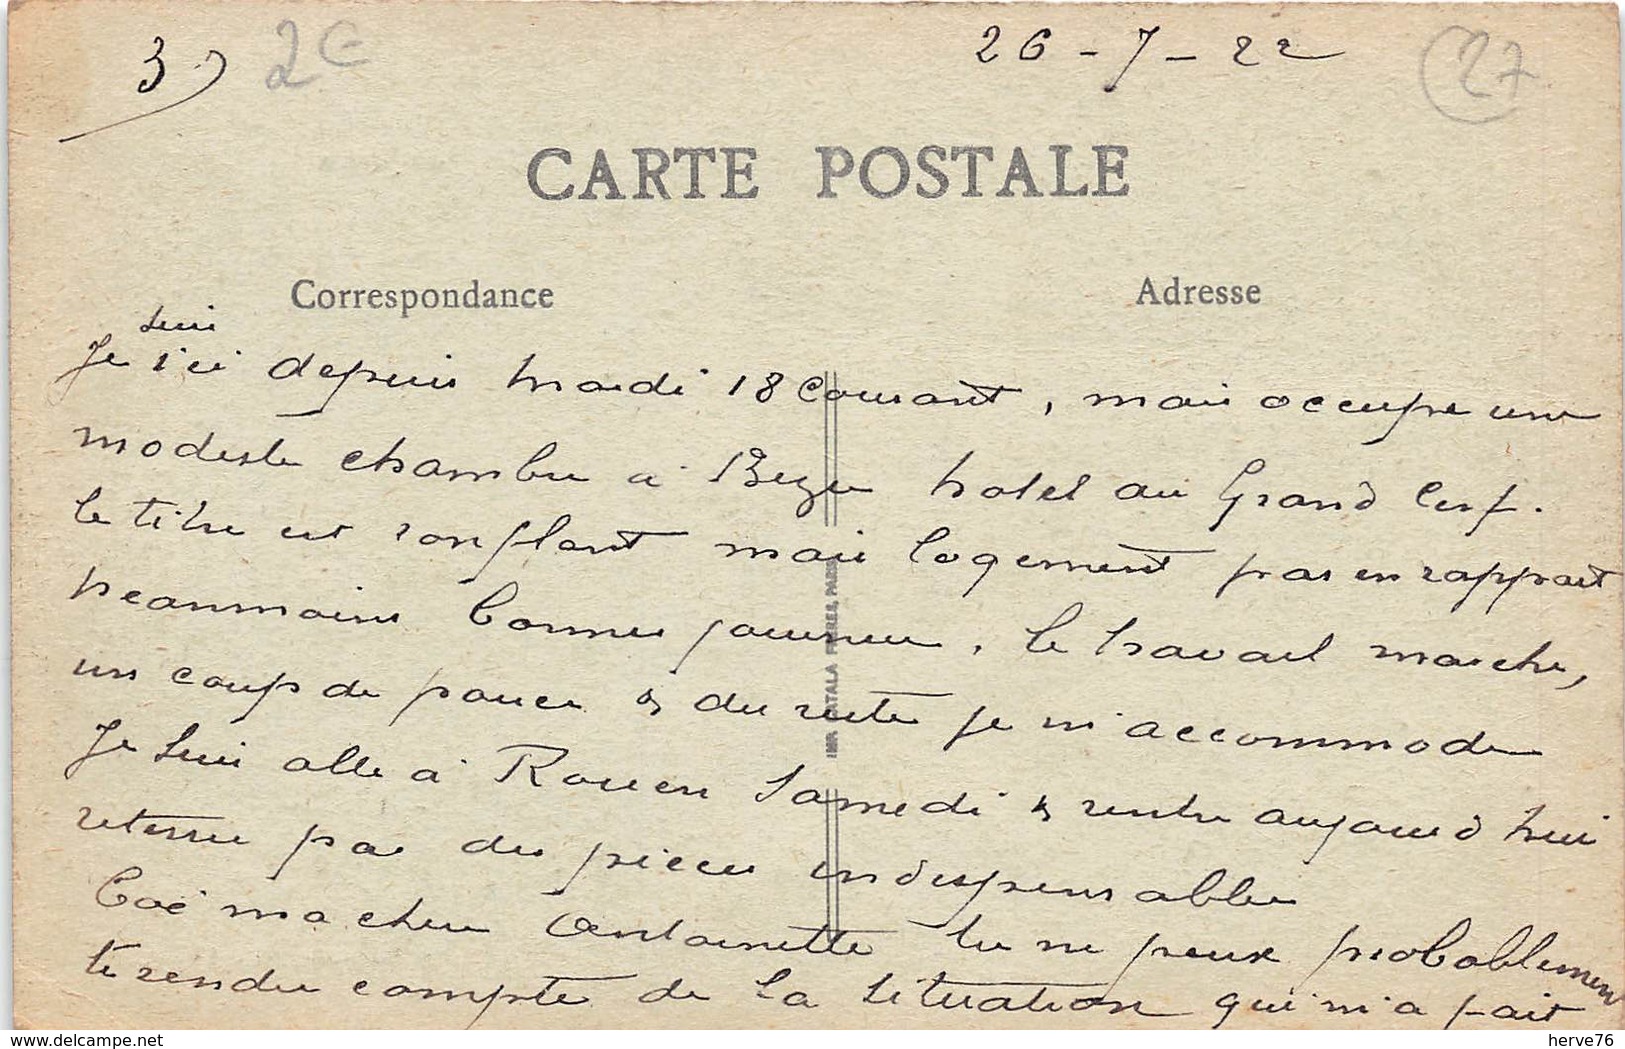 3°)
2€
26-7-22
27
CARTE POSTALE
Correspondance
Adresse
suis
Je ici depuis mardi 18 Courant, mais occupe une
modeste chambre à Bezu hotel au Grand Cerf.
le titre est ronflant mais logement pas en rapport
neanmoins bonnes journées. le travail marche,
un coup de pouce & du reste je m'accommode
Je suis allé à Rouen Samedi & rentre aujourd'hui
retenu par des pièces indispensables
Toi ma chère Antoinette tu ne peux probablement
te rendre compte de la situation qui m'a fait
IMP. CATALA FRERES, PARIS
delcampe.net
herve76